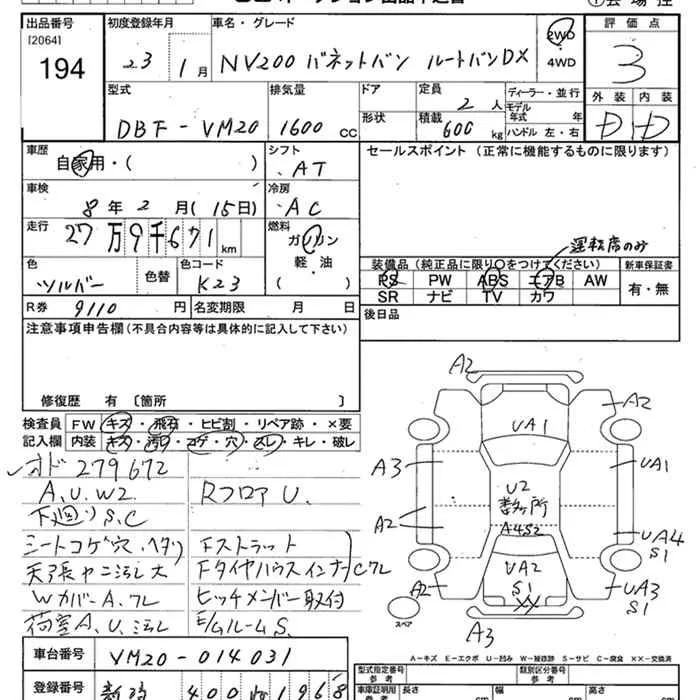 出品番号 初度登録年月 車名・グレード 評価点
[2064]
194 23 1月 NV200 バネットバン ルートバンDX 2WD 4WD 3
型式 排気量 ドア 定員 2人 ディーラー・並行 外装 内装
DBF-VM20 1600cc 形状 積載 600kg モデル年式 年 ハンドル 左・右 D D
車歴 自家用・( ) シフト AT セールスポイント (正常に機能するものに限ります)
車検 8年2月(15日) 冷房 AC
走行 27万9千671km 燃料 ガソリン 軽・油 ( )
運転席のみ
色 シルバー 色替 色コード K23 装備品 (純正品に限り○をつけてください) 新車保証書
PS PW ABS エアB AW 有・無
SR ナビ TV カワ
R券 9110円 名変期限 月 日 後日品
注意事項申告欄 (不具合内容等は具体的に記入して下さい)
修復歴 有 [箇所 ]
検査員 FW キズ・飛石・ヒビ割・リペア跡・×要
記入欄 内装 キズ・汚れ・コゲ・穴・スレ・キレ・破レ
オド 279672
A.U.W2. Rフロア U.
下廻り S.C
シートコゲ穴.ヘタリ Fストラット
天張ヤニ汚レ大 FタイヤハウスインナーCワレ
Wカバー A.ワレ ヒッチメンバー取付
荷室A.U.汚レ E/GルームS.
A2
A2
UA1
A3 UA1
U2
数ヶ所
A2 A4S2 UA4
S1
UA2
A2 S1 UA3
XX S1
スペア A3
A-キズ E-エクボ U-凹み W-補修跡 S-サビ C-腐食 XX-交換済
車台番号 VM20-014031
型式指定番号 参考 類別区分番号 参考
登録番号 400 1968
車庫証明用 参考 長さ cm 幅 cm 高さ cm